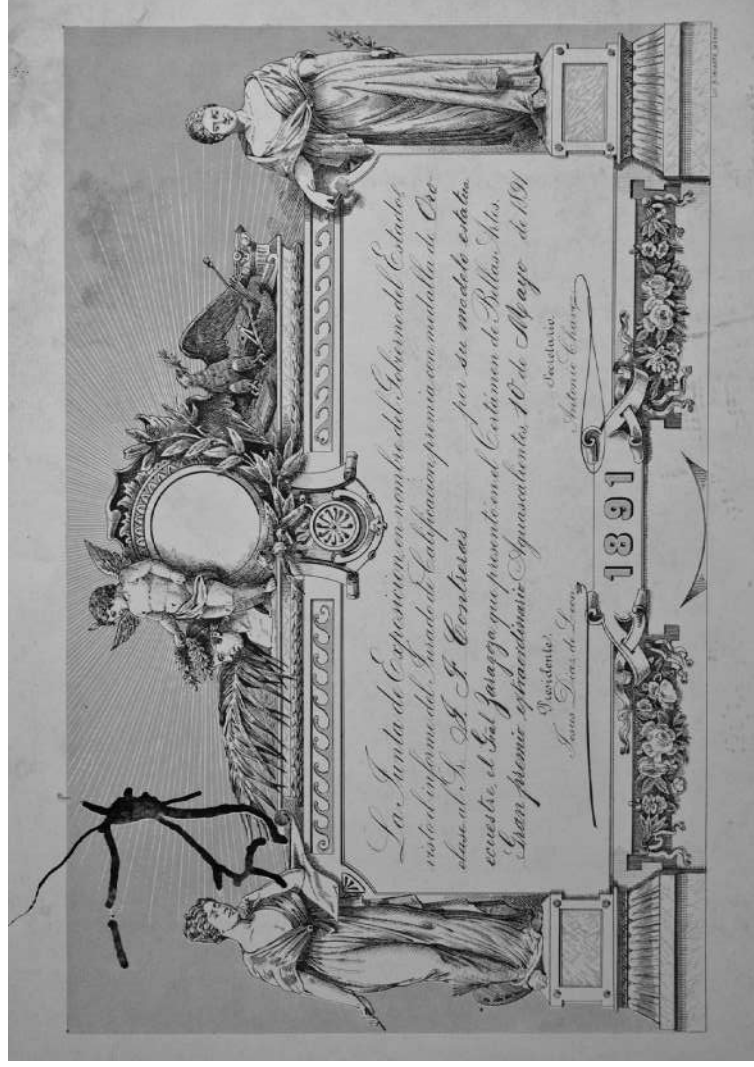 La Junta de Exposicion en nombre del Gobierno del Estado,
visto el informe del Jurado de Calificacion, premia con medalla de Oro
clase al Sr. J. F. Contreras por su modelo estatua
ecuestre, el Gral Zaragoza que presentó en el Certámen de Bellas Artes.
Gran premio extraordinario Aguascalientes 10 de Mayo de 1891
Presidente. Secretario.
Jesus Diaz de Leon Antonio Chavez
1891